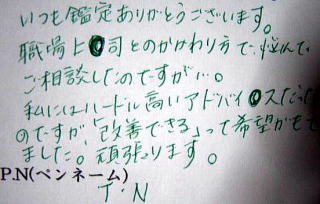 いつも鑑定ありがとうございます。
職場上司とのかかわり方で、悩んで、
ご相談したのですが…。
私にはハードル高いアドバイスだった
のですが、「改善できる」って希望がもて
ました。頑張ります。
P.N(ペンネーム)
T.N